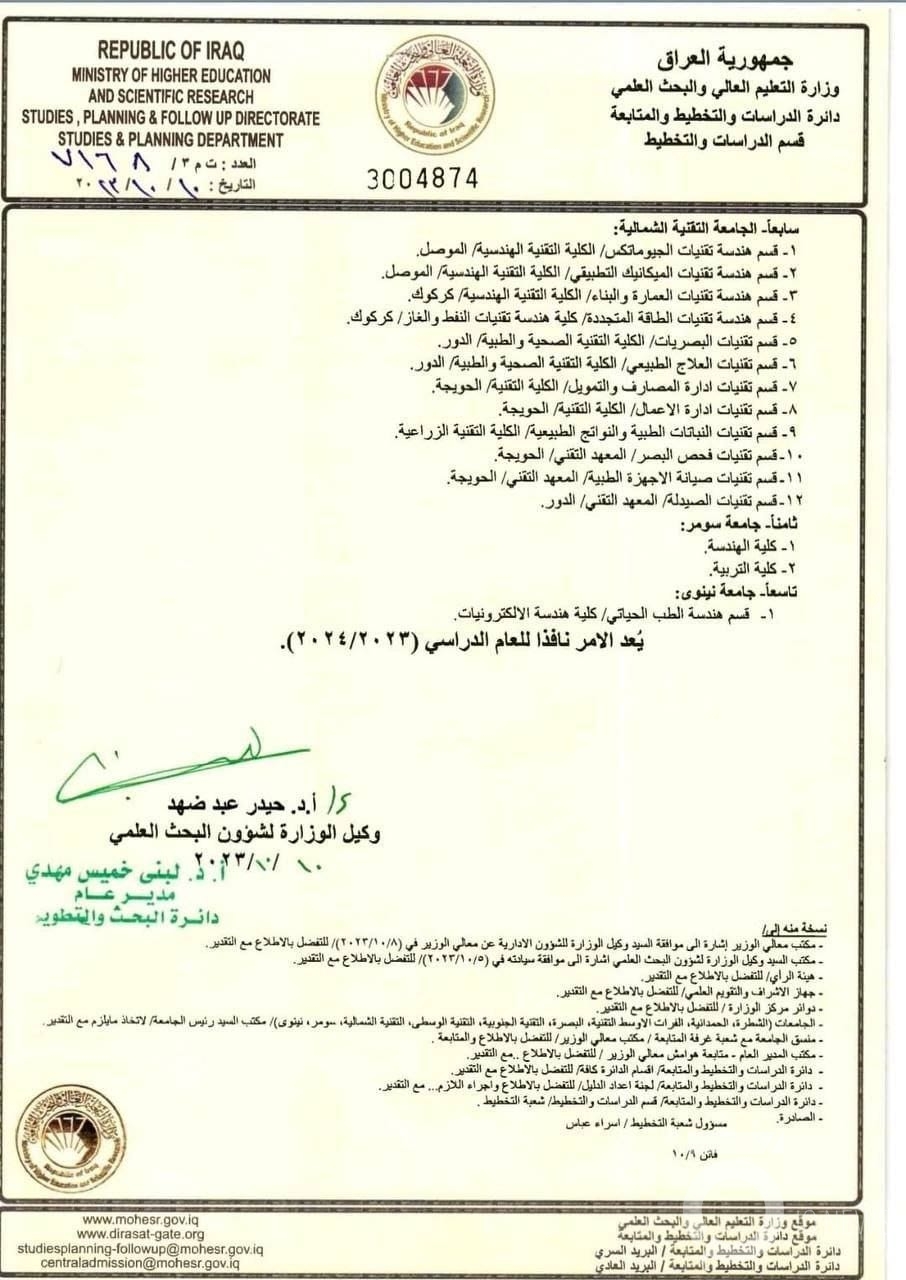 REPUBLIC OF IRAQ
MINISTRY OF HIGHER EDUCATION
AND SCIENTIFIC RESEARCH
STUDIES , PLANNING & FOLLOW UP DIRECTORATE
STUDIES & PLANNING DEPARTMENT
العدد : ت م ٣/ ٧١٦٨
التاريخ : ١٠/ ١٠/ ٢٠٢٣
Ministry of Higher Education and Scientific Research
Republic of Iraq
3004874
جمهورية العراق
وزارة التعليم العالي والبحث العلمي
دائرة الدراسات والتخطيط والمتابعة
قسم الدراسات والتخطيط
سابعاً- الجامعة التقنية الشمالية:
١- قسم هندسة تقنيات الجيوماتكس/ الكلية التقنية الهندسية/ الموصل.
٢- قسم هندسة تقنيات الميكانيك التطبيقي/ الكلية التقنية الهندسية/ الموصل.
٣- قسم هندسة تقنيات العمارة والبناء/ الكلية التقنية الهندسية/ كركوك.
٤- قسم هندسة تقنيات الطاقة المتجددة/ كلية هندسة تقنيات النفط والغاز/ كركوك.
٥- قسم تقنيات البصريات/ الكلية التقنية الصحية والطبية/ الدور.
٦- قسم تقنيات العلاج الطبيعي/ الكلية التقنية الصحية والطبية/ الدور.
٧- قسم تقنيات ادارة المصارف والتمويل/ الكلية التقنية/ الحويجة.
٨- قسم تقنيات ادارة الاعمال/ الكلية التقنية/ الحويجة.
٩- قسم تقنيات النباتات الطبية والنواتج الطبيعية/ الكلية التقنية الزراعية.
١٠- قسم تقنيات فحص البصر/ المعهد التقني/ الحويجة.
١١- قسم تقنيات صيانة الاجهزة الطبية/ المعهد التقني/ الحويجة.
١٢- قسم تقنيات الصيدلة/ المعهد التقني/ الدور.
ثامناً- جامعة سومر:
١- كلية الهندسة.
٢- كلية التربية.
تاسعاً- جامعة نينوى:
١- قسم هندسة الطب الحياتي/ كلية هندسة الالكترونيات.
يُعد الامر نافذا للعام الدراسي (٢٠٢٤/٢٠٢٣).
أ.د. حيدر عبد ضهد
وكيل الوزارة لشؤون البحث العلمي
١٠ /١٠/ ٢٠٢٣
أ. د. لبنى خميس مهدي
مديــر عــام
دائـرة البحث والتطوير
نسخة منه إلى/
- مكتب معالي الوزير إشارة الى موافقة السيد وكيل الوزارة للشؤون الادارية عن معالي الوزير في (٢٠٢٣/١٠/٨)/ للتفضل بالاطلاع مع التقدير.
- مكتب السيد وكيل الوزارة لشؤون البحث العلمي اشارة الى موافقة سيادته في (٢٠٢٣/١٠/٥)/ للتفضل بالاطلاع مع التقدير.
- هيئة الرأي/ للتفضل بالاطلاع مع التقدير.
- جهاز الاشراف والتقويم العلمي/ للتفضل بالاطلاع مع التقدير.
- دوائر مركز الوزارة / للتفضل بالاطلاع مع التقدير.
- الجامعات (الشطرة، الحمدانية، الفرات الاوسط التقنية، البصرة، التقنية الجنوبية، التقنية الوسطى، التقنية الشمالية، سومر، نينوى)/ مكتب السيد رئيس الجامعة/ لاتخاذ مايلزم مع التقدير.
- منسق الجامعة مع شعبة غرفة المتابعة / مكتب معالي الوزير/ للتفضل بالاطلاع والمتابعة .
- مكتب المدير العام - متابعة هوامش معالي الوزير / للتفضل بالاطلاع ..مع التقدير.
- دائرة الدراسات والتخطيط والمتابعة/ اقسام الدائرة كافة/ للتفضل بالاطلاع مع التقدير.
- دائرة الدراسات والتخطيط والمتابعة/ لجنة اعداد الدليل/ للتفضل بالاطلاع واجراء اللازم... مع التقدير.
- دائرة الدراسات والتخطيط والمتابعة/ قسم الدراسات والتخطيط/ شعبة التخطيط .
- الصادرة.
مسؤول شعبة التخطيط / اسراء عباس
فاتن ١٠/٩
Republic of Iraq
www.mohesr.gov.iq
www.dirasat-gate.org
studiesplanning-followup@mohesr.gov.iq
centraladmission@mohesr.gov.iq
موقع وزارة التعليم العالي والبحث العلمي
موقع دائرة الدراسات والتخطيط والمتابعة
دائرة الدراسات والتخطيط والمتابعة / البريد السري
دائرة الدراسات والتخطيط والمتابعة / البريد العادي